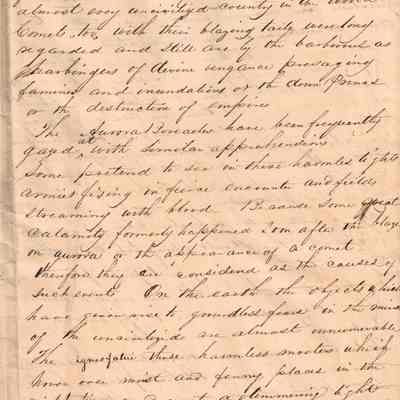 almost every uncivilized country in the world
Comets too with their blazing tails were long
regarded and still are by the barbarous as
harbingers of divine vengance presaging
famines and inundations or the down Princes
or the destruction of empires
The Aurora Borealis have been frequently
gazed at with similar apprehensions
Some pretend to see in these harmless lights
armies fixing in fierce encounte and fields
streaming with blood. Because some great
calamity formerly happened soon after the blaze
on aurora or the appearance of a comet
therefore they are considerd as the causes of
such events. On the earth the objects which
have given rise to groundless fears in the minds
of the uncivilized are almost innumerable
The ignes fatui those harmless meteors which
hover over moist and fenny places in the
glimmering light